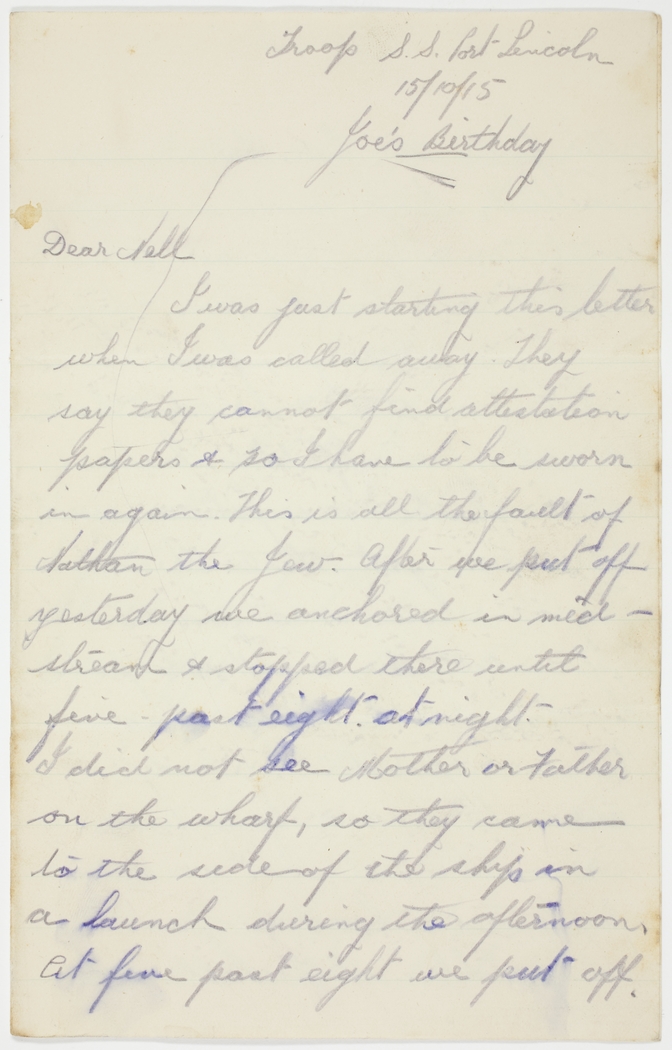 Troop S.S. Port Lincoln
15/10/15
Joe's Birthday
Dear Nell
I was just starting this letter
when I was called away. They
say they cannot find attestation
papers & so I have to be sworn
in again. This is all the fault of
Nathan the Jew. After we put off
yesterday we anchored in mid-
stream & stopped there until
five past eight at night.
I did not see Mother or Father
on the wharf, so they came
to the side of the ship in
a launch during the afternoon.
At five past eight we put off.